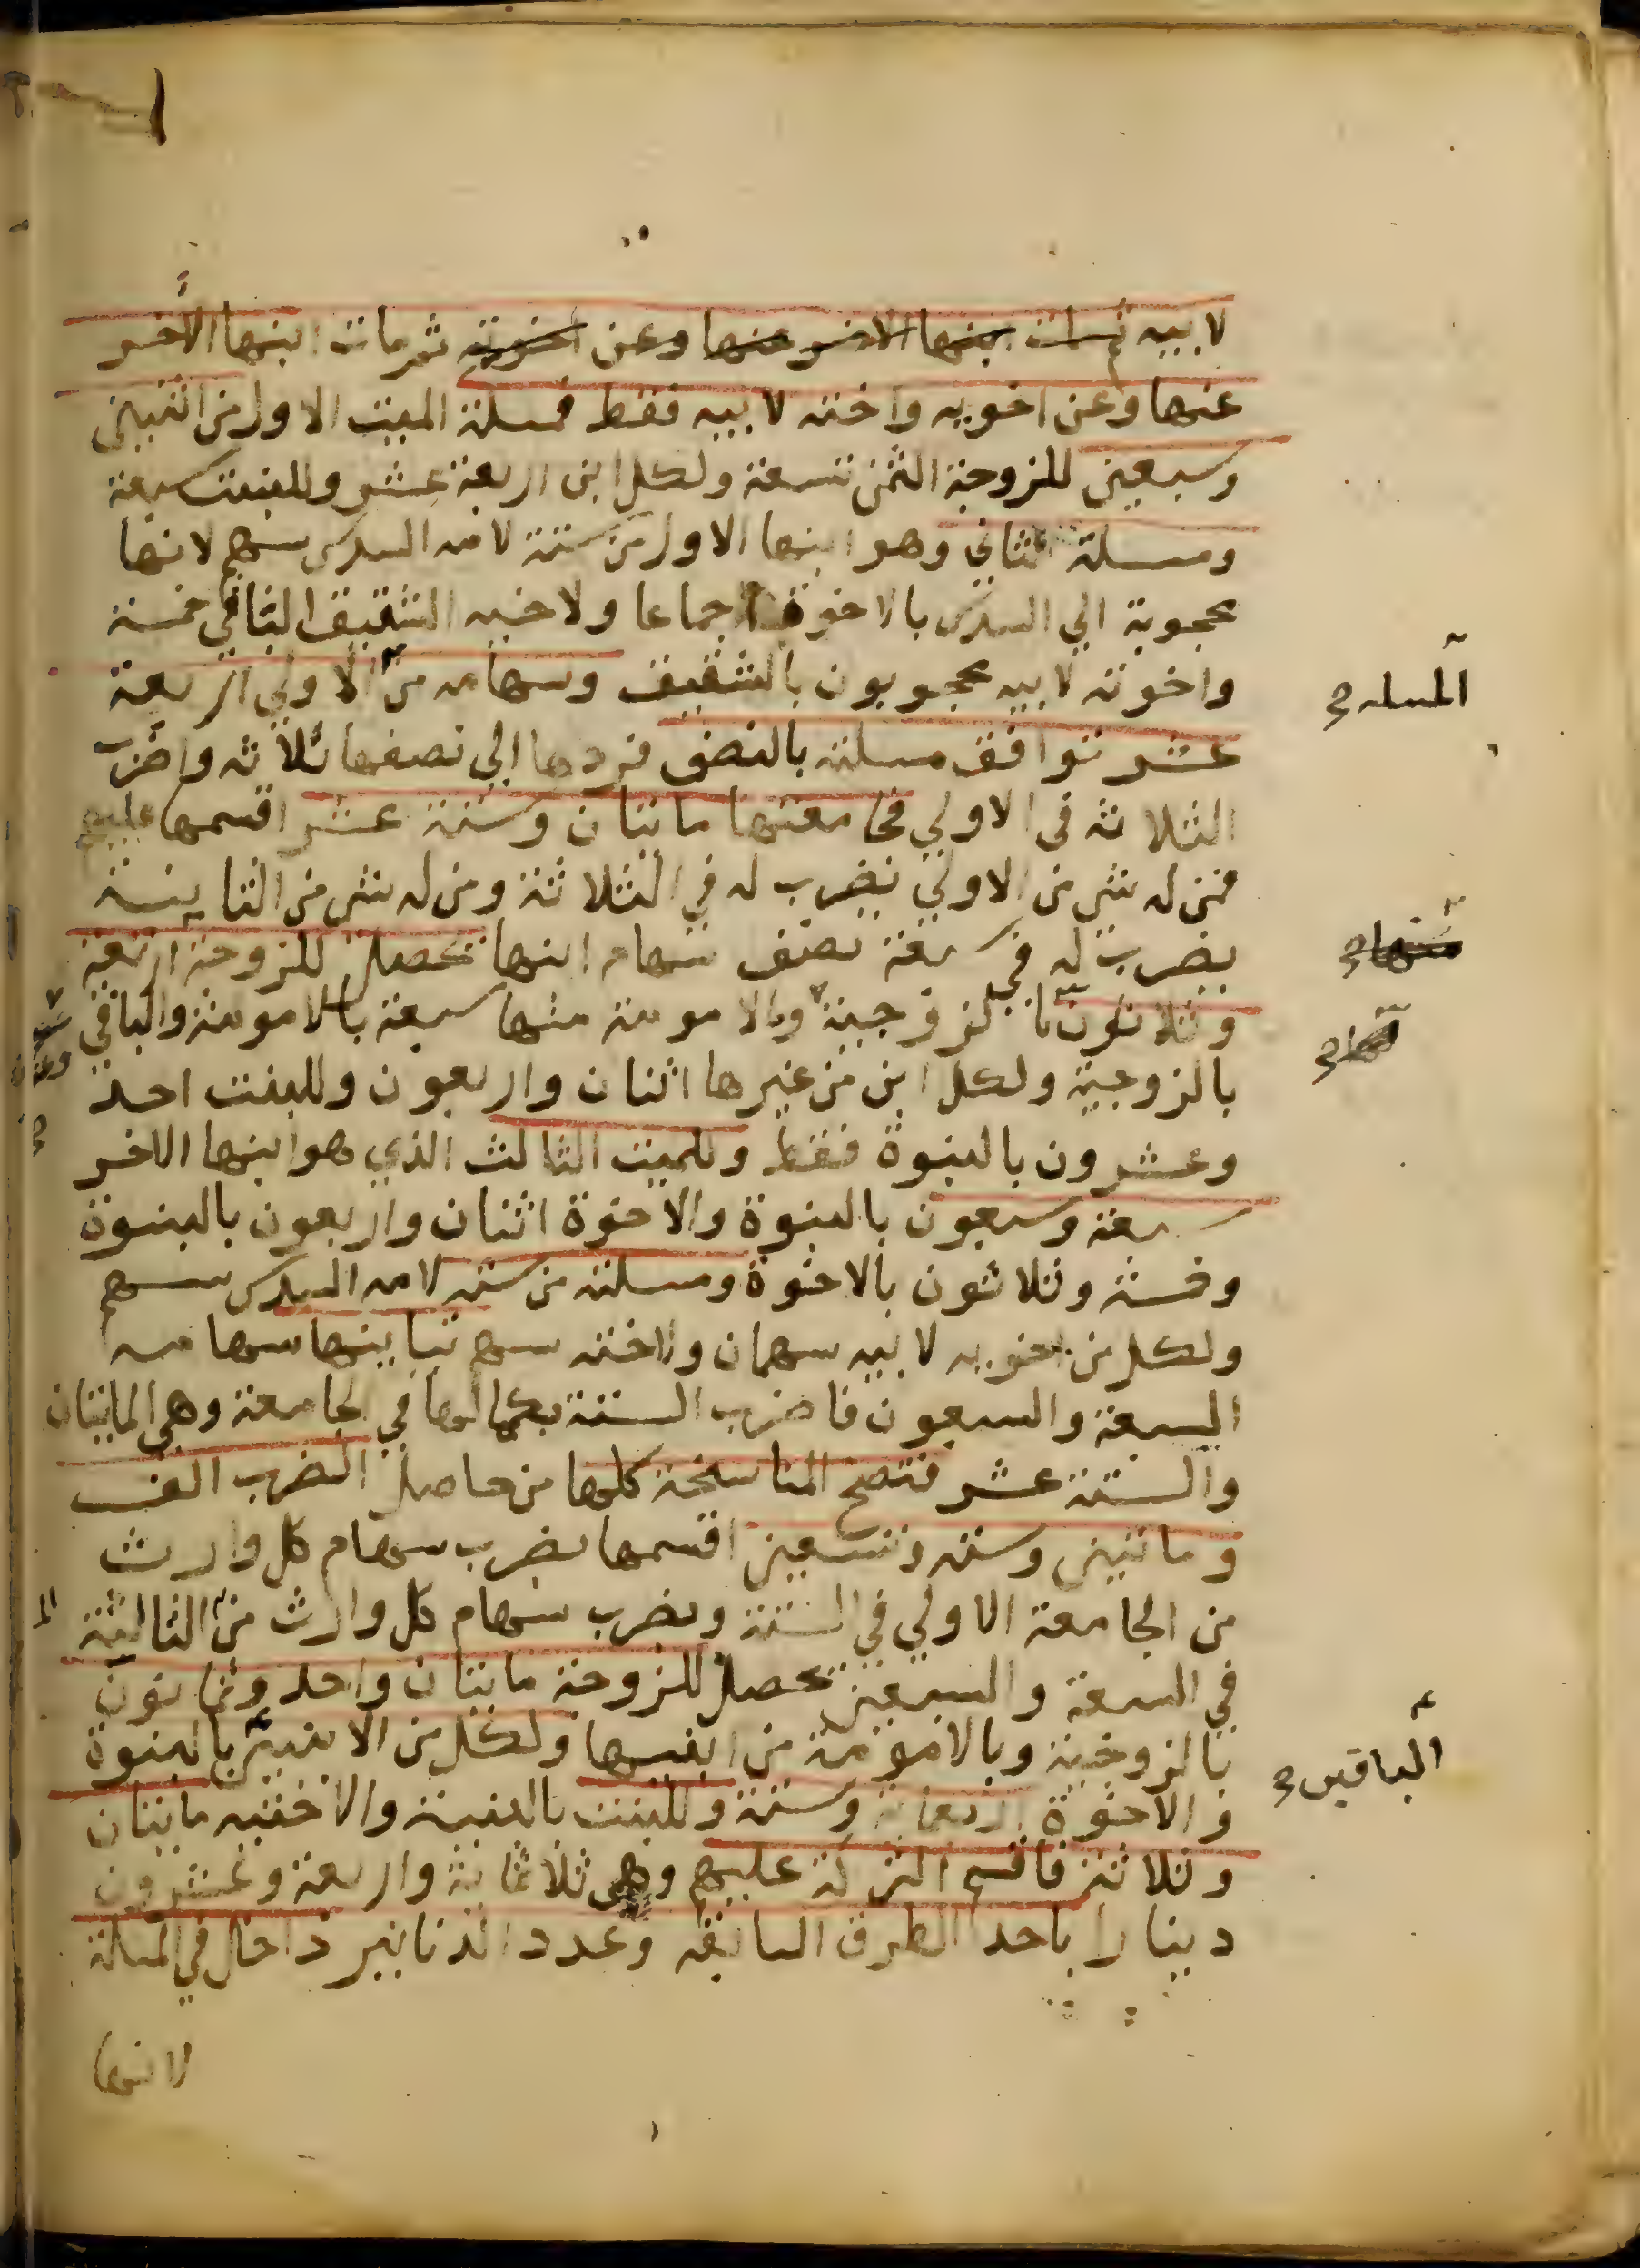 لابيه ثم مات ابنها الاخر عنها وعن اخوته ثم مات ابنها الاخر
عنها وعن اخويه واخته لابيه فقط فمسلة الميت الاول من اثنين
وسبعين للزوجة الثمن تسعة ولكل ابن اربعة عشر وللبنت سبعة
ومسلة الثاني وهو ابنها الاول من ستة لامه السدس سهم لانها
محجوبة الي السدس بالاخوة اجماعا ولاخيه الشقيق الباقي خمسة
واخوته لابيه محجوبون بالشقيق وسهامه من الاولي اربعة
المسله صح
عشر توافق مسلته بالنصف فردها الي نصفها ثلاثه واضرب
الثلاثه في الاولي فجامعتها مايتان وستة عشر اقسمها عليهم
فمن له شي من الاولي يضرب له في الثلاثة ومن له شي من الثانية
يضرب له في سبعة نصف سهام ابنها تحصل للزوجة اربعة
منها صح
وثلاثون بالزوجية والامومة منها سبعة بالامومة والباقي
سبعة وعشرون صح
بالزوجية ولكل ابن من غيرها اثنان واربعون وللبنت احد
وعشرون بالبنوة فقط وللميت الثالث الذي هو ابنها الاخر
سبعة وسبعون بالبنوة والاخوة اثنان واربعون بالبنوة
وخمسة وثلاثون بالاخوة ومسلته من سته لامه السدس سهم
ولكل من اخويه لابيه سهمان ولاخته سهم تباينها سهامه
السبعة والسبعون فاضرب الستة بكمالها في الجامعة وهي المايتان
والستة عشر فتصح المناسخة كلها من حاصل الضرب الف
ومايتين وسته وتسعين اقسمها بضرب سهام كل وارث
من الجامعة الاولي في الستة وبضرب سهام كل وارث من الثالثة
في السبعة والسبعين تحصل للزوجة مايتان واحد وثمانون
بالزوجية وبالامومة من ابنيها ولكل من الابنين بالبنوة
الباقيين صح
والاخوة اربعماية وستة وللبنت بالبنتية والاختيه مايتان
وثلاثة فاقسم التركة عليهم وهي ثلاثماية واربعة وعشرون
دينارا باحد الطرق السابقه وعدد الدنانير داخل في المسلة
لانها